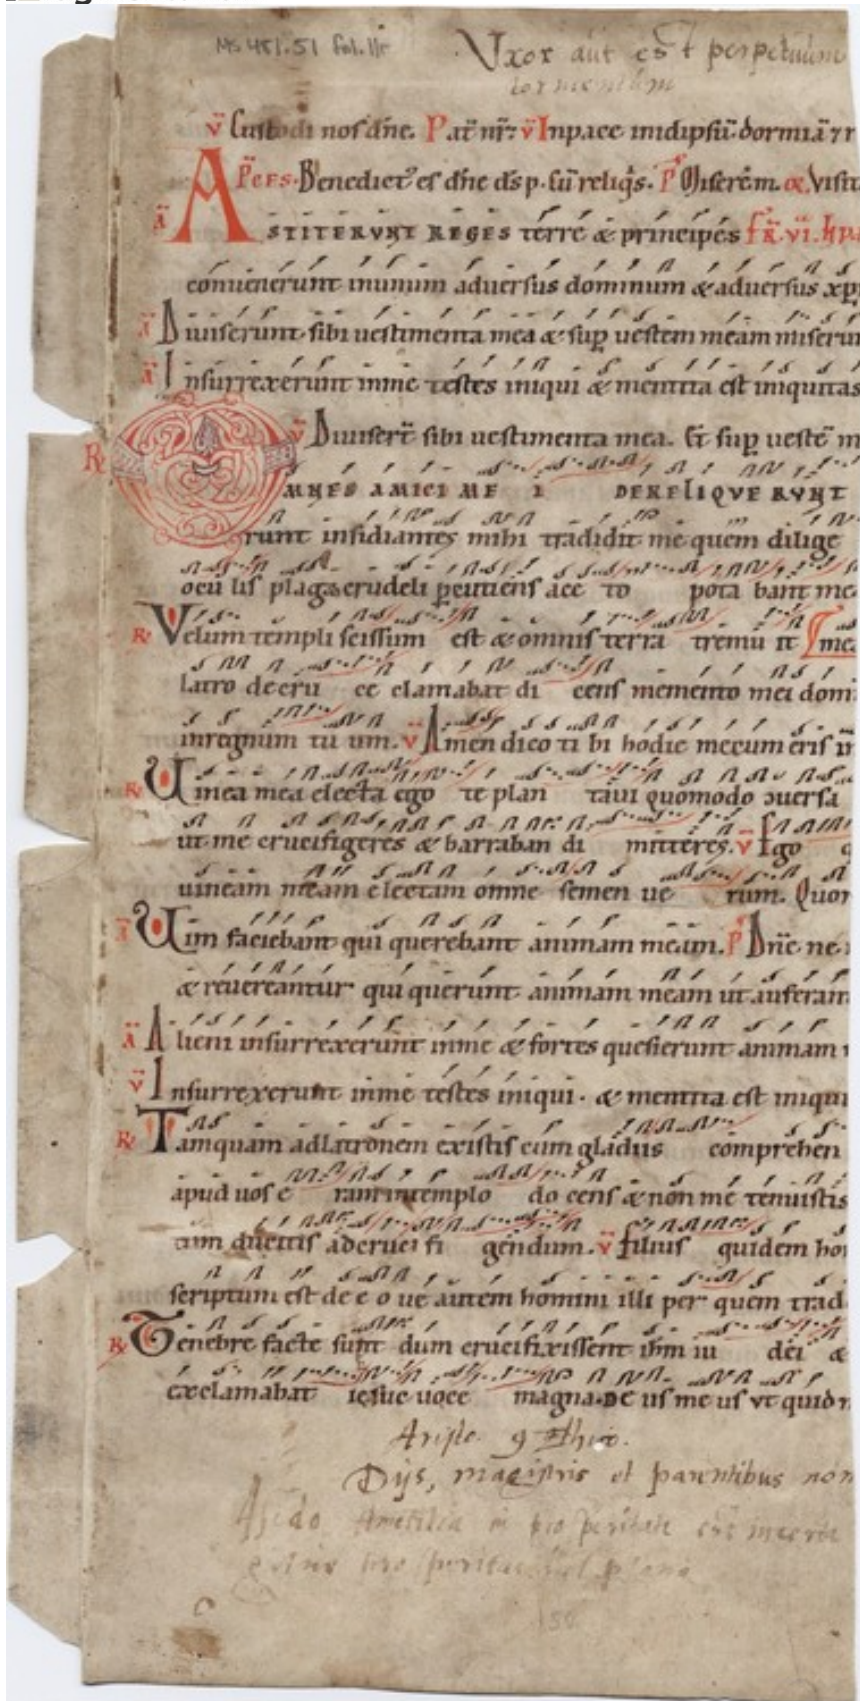 Ms 481.51 fol. 11r
Uxor aut est perpetuum
tormentum
v̄ Custodi nos dn̄e. Pat̄ nr̄: v̄ In pace inidipsū dormiā ⁊ r
P̄ces. Benedict᷒ es dn̄e ds̄ p. P᷒ Miserēm. & Visit
ā ASTITERUNT REGES terrę & principes fr̄. vi.
convenerunt inunum adversus dominum & adversus xp̄
ā Diviserunt sibi vestimenta mea & sup̱ vestem meam miserun
ā Insurrexerunt inme testes iniqui & mentita est iniquitas
v̄ Diviser̄t sibi vestimenta mea. Et sup̱ vestē m
R̷ OMNES AMICI ME I DERELIQUERUNT
runt insidiantes mihi tradidit me quem dilige
ocu lis plaga crudeli p̱cutiens ace to pota bant me
R̷ Velum templi scissum est & omnis terra tremu it
latro decru ce clamabat di cens memento mei domi
inregnum tu um. v̄ Amen dico ti bi hodie mecum eris in
R̷ Vinea mea electa ego te plan tavi quomodo ɔversa
ut me crucifigeres & barraban di mitteres. v̄ Ego q
vineam meam electam omne semen ve rum. Quom
ā Vim faciebant qui querebant animam meam. P᷒ Dn̄e ne
& revereantur qui querunt animam meam ut auferant
ā Alieni insurrexerunt inme & fortes quesierunt animam
v̄ Insurrexerunt inme testes iniqui. & mentita est iniqui
R̷ Tamquam adlatronem existis cum gladiis comprehen
apud vos e ram intemplo do cens & non me tenuistis
tum ducitis adcruci fi gendum. v̄ filius quidem ho
scriptum est de e o ve autem homini illi per quem trad
R̷ Tenebre facte sunt dum crucifixissent ih̄m iu dei &
exclamabat iesus voce magna DE us me us ut quid
Aristo. 9 Ethico.
Dijs, magistris et parentibus non